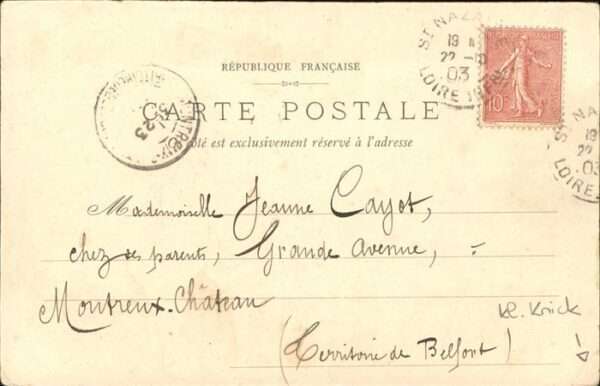 RÉPUBLIQUE FRANÇAISE
CARTE POSTALE
côté est exclusivement réservé à l'adresse
ST NAZA
19
22 -10
03
LOIRE INFRE
10
MONTREUX
23
ST NA
19
22
03
LOIRE
Mademoiselle Jeanne Cayot,
chez ses parents, Grande Avenue,
Montreux-Château
(Territoire de Belfort)